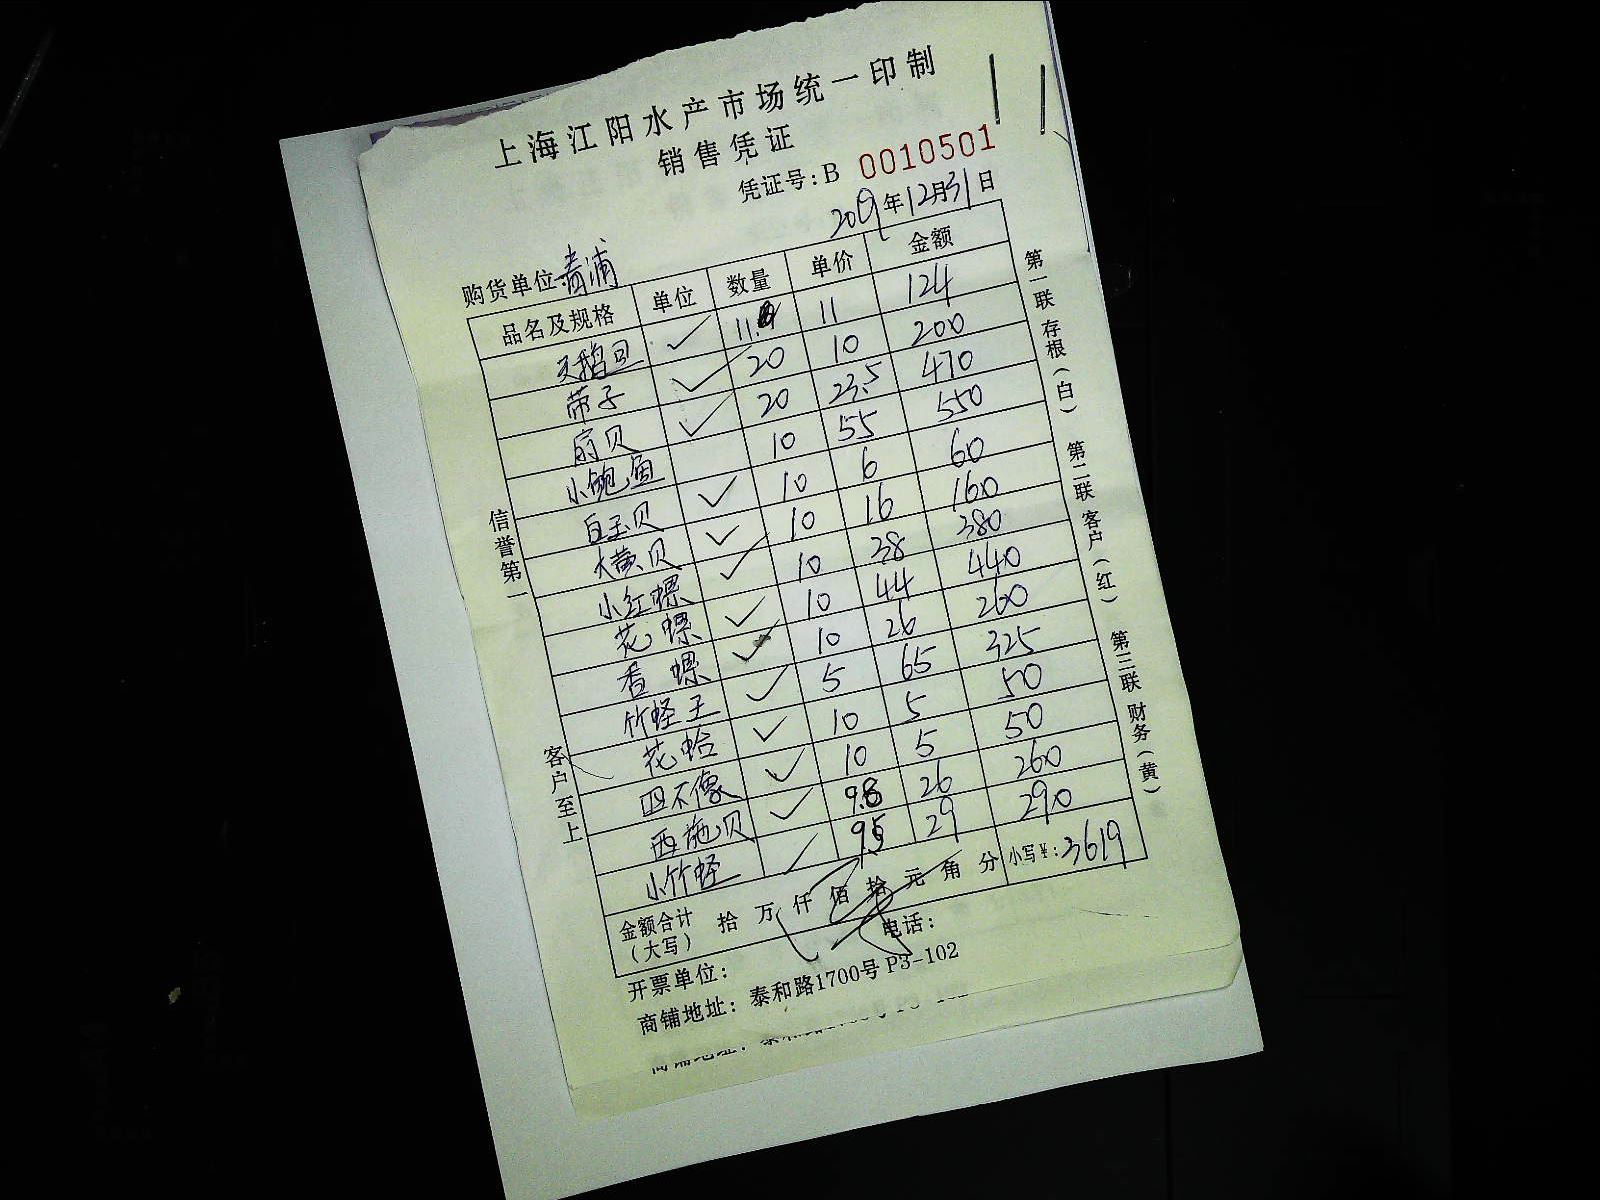 上海江阳水产市场统一印制
销售凭证
凭证号:B 0010501
2019年12月31日
购货单位 青浦
品名及规格 单位 数量 单价 金额
天鹅贝 ✓ 11 124
带子 ✓ 20 10 200
扇贝 ✓ 20 23.5 470
小鲍鱼 10 55 550
白玉贝 ✓ 10 6 60
大黄贝 ✓ 10 16 160
小红螺 ✓ 10 38 380
花螺 ✓ 10 44 440
香螺 ✓ 10 26 260
竹蛏王 ✓ 5 65 325
花蛤 ✓ 10 5 50
四不像 ✓ 10 5 50
西施贝 ✓ 9.8 26 260
小竹蛏 ✓ 9.5 29 290
金额合计(大写) 拾 万 仟 佰 拾 元 角 分 小写¥:3619
开票单位: 电话:
商铺地址: 泰和路1700号 P3-102
信誉第一
客户至上
第一联 存根(白) 第二联 客户(红) 第三联 财务(黄)